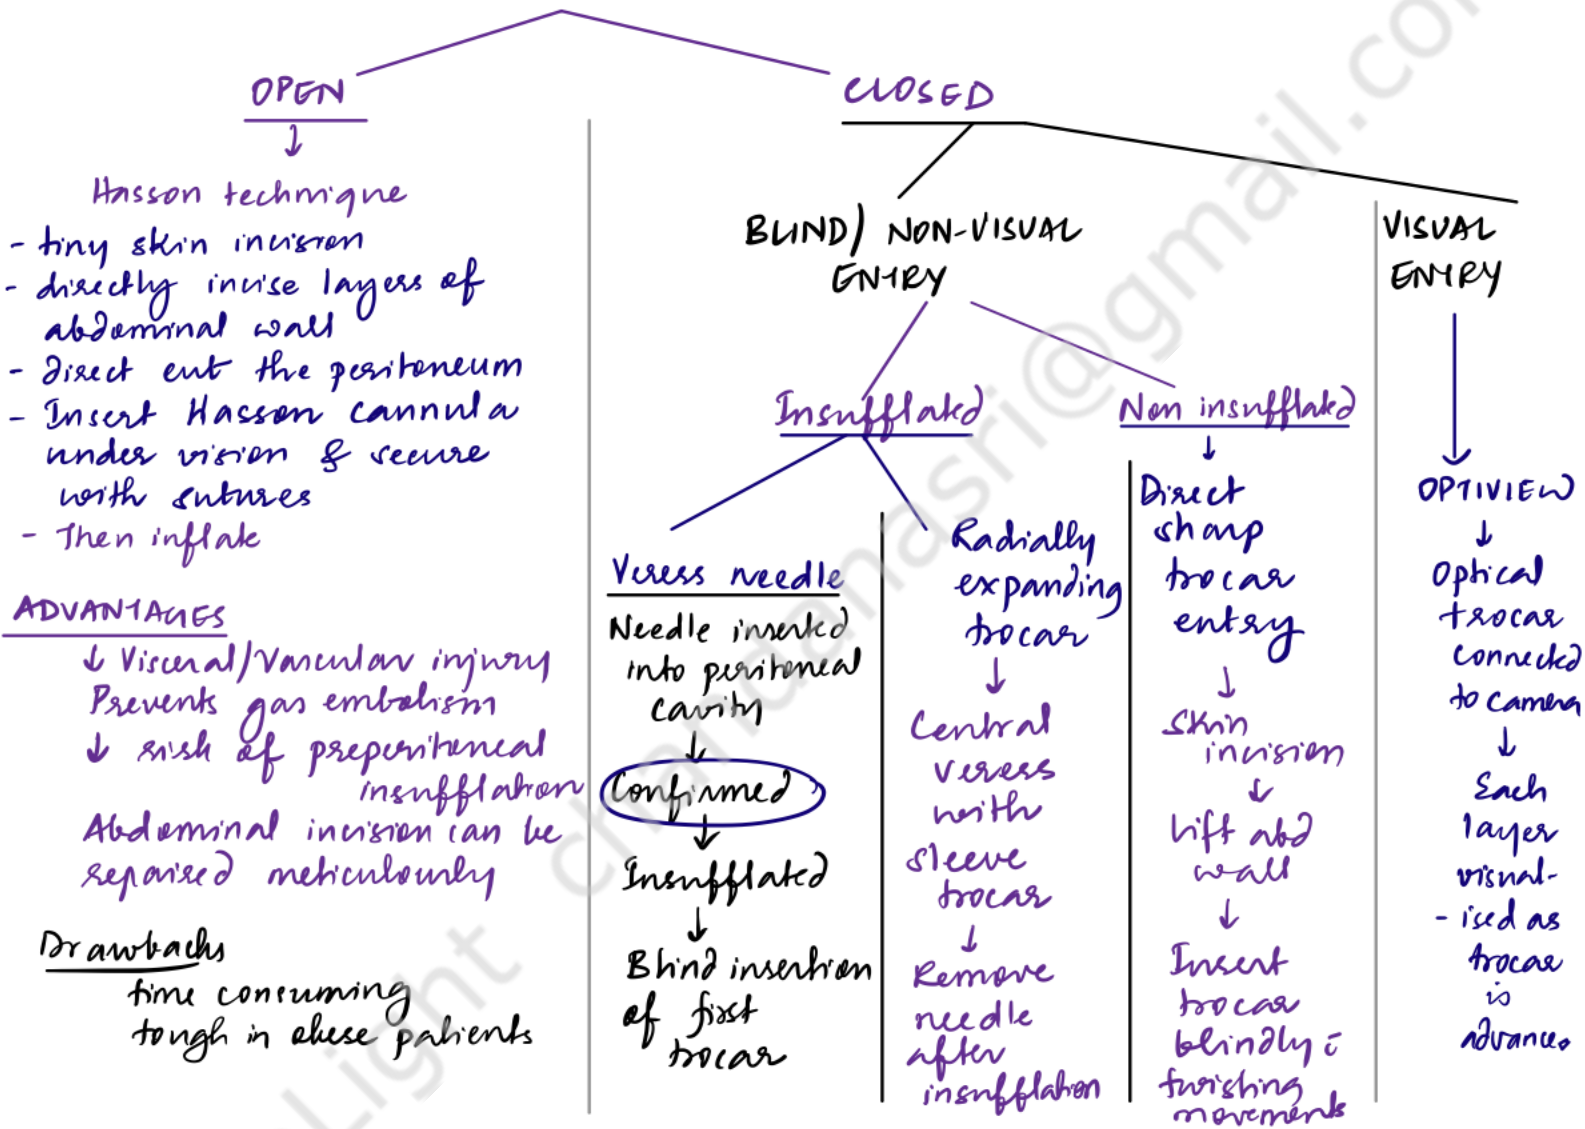 OPEN
Hasson technique
- tiny skin incision
- directly incise layers of
abdominal wall
- direct cut the peritoneum
- Insert Hasson cannula
under vision & secure
with sutures
- Then inflate
ADVANTAGES
↓ Visceral/Vascular injury
Prevents gas embolism
↓ risk of preperitoneal
insufflation
Abdominal incision can be
repaired meticulously
Drawbacks
time consuming
tough in obese patients
CLOSED
BLIND/ NON-VISUAL
ENTRY
Insufflated
Veress needle
Needle inserted
into peritoneal
cavity
↓
Confirmed
↓
Insufflated
↓
Blind insertion
of first
trocar
Radially
expanding
trocar
↓
Central
veress
with
sleeve
trocar
↓
Remove
needle
after
insufflation
Non insufflated
↓
Direct
sharp
trocar
entry
↓
Skin
incision
↓
lift abd
wall
↓
Insert
trocar
blindly c̄
twisting
movements
VISUAL
ENTRY
↓
OPTIVIEW
↓
Optical
trocar
connected
to camera
↓
Each
layer
visual-
- ised as
trocar
is
advance.
Light chandanasri@gmail.com